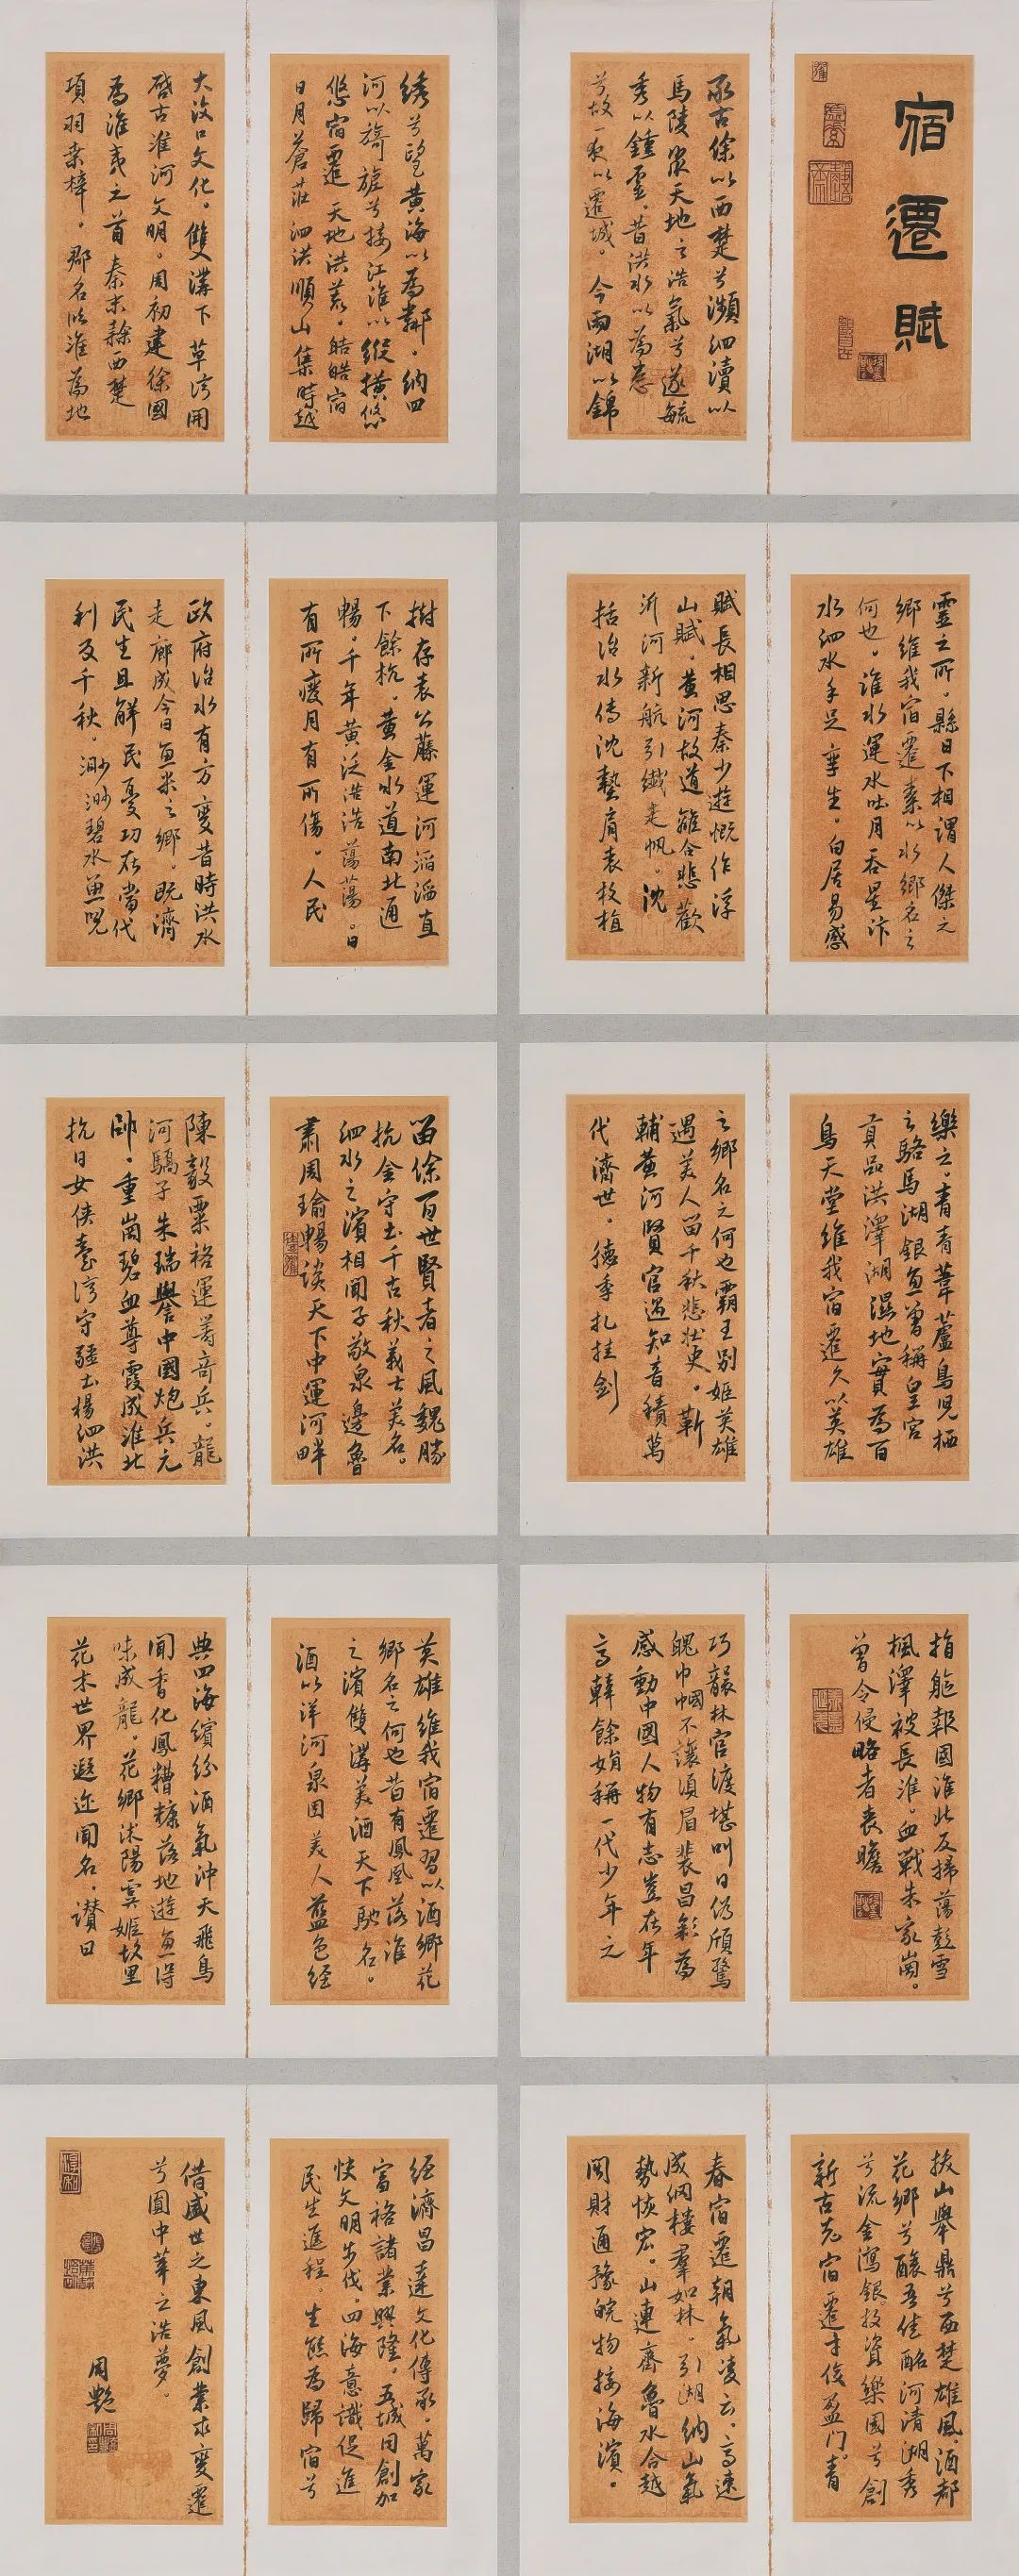 宿遷賦
承古徐以西楚兮瀕泗瀆以
馬陵聚天地之浩氣兮遂毓
秀以鍾靈昔洪水以為患
兮故一夜以遷城今兩湖以錦
綉兮望黃海以為鄰納四
河以旖旎兮接江淮以縱橫悠
悠宿遷天地洪荒皓皓宿
日月蒼茫泗洪順山集時越
大汶口文化雙溝下草灣開
啓古淮河文明周初建徐國
為淮夷之首秦末隸西楚
項羽桑梓郡名臨淮為地
靈之所縣曰下相謂人傑之
鄉維我宿遷素以水鄉名之
何也淮水運水吐月吞星汴
水泗水手足孿生白居易感
賦長相思秦少遊慨作浮
山賦黃河故道離合悲歡
沂河新航引纖走帆沈
括治水傳沈墊肩袁枚植
樹存表公藤運河滔滔直
下餘杭黃金水道南北通
暢千年黃泛浩浩蕩蕩日
有所瘦月有所傷人民
政府治水有方變昔時洪水
走廊成今日魚米之鄉既濟
民生且解民憂功在當代
利及千秋渺渺碧水魚兒
樂之青青葦蘆鳥兒栖
之駱馬湖銀魚曾稱皇宮
貢品洪澤湖濕地實為百
鳥天堂維我宿遷久以英雄
之鄉名之何也霸王別姬英雄
遇美人留千秋悲壯史靳
輔黃河賢官遇知音積萬
代濟世德季札挂劍
留徐百世賢者之風魏勝
抗金守土千古秋義士美名
泗水之濱相聞子敬泉邊魯
肅周瑜暢談天下中運河畔
陳毅粟裕運籌奇兵龍
河驕子朱瑞譽中國炮兵元
帥重崗碧血尊霞成淮北
抗日女俠臺灣守疆土楊泗洪
指軀報國淮北反掃蕩彭雪
楓澤被長淮血戰朱家崗
曾令侵略者喪膽
巧襲林官渡堪叫日偽頎驚
魄巾幗不讓須眉裴昌彩為
感動中國人物有志豈在年
高韓餘娟稱一代少年之
英雄維我宿遷習以酒鄉花
鄉名之何也昔有鳳凰落淮
之濱雙溝美酒天下馳名
酒以洋河泉因美人藍色經
典四海繽紛酒氣沖天飛鳥
聞香化鳳糟糠落地遊魚得
味成龍花鄉沭陽虞姬故里
花木世界遐迩聞名讃曰
拔山舉鼎兮西楚雄風酒都
花鄉兮釀吾佳酩河清湖秀
兮流金瀉銀投資樂園兮創
新古老宿遷才俊盈門青
春宿遷朝氣凌云高速
成網樓羣如林引湖納山氣
勢恢宏山連齊魯水合越
閩財通豫皖物接海濱
經濟昌達文化傳承萬家
富裕諸業興隆五城同創加
快文明步伐四海意識促進
民生進程生態為歸宿兮
借盛世之東風創業求變遷
兮圓中華之浩夢
周艷